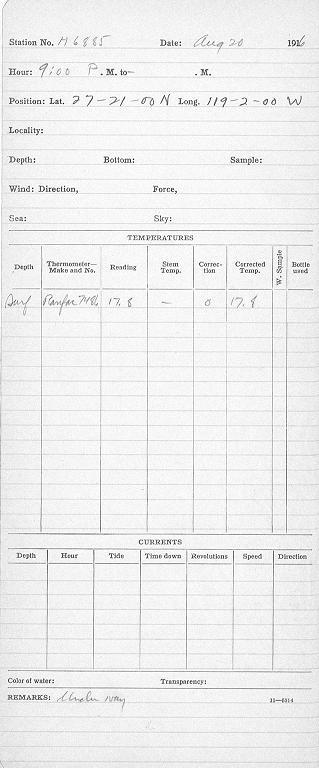 Station No. H6885 Date: Aug 20 1916
Hour: 9:00 P. M. to— . M.
Position: Lat. 27-21-00 N Long. 119-2-00 W
Locality:
Depth: Bottom: Sample:
Wind: Direction, Force,
Sea: Sky:
TEMPERATURES
Depth Thermometer—Make and No. Reading Stem Temp. Correction Corrected Temp. W. Sample Bottle used
Surf 17.8 — 0 17.8
CURRENTS
Depth Hour Tide Time down Revolutions Speed Direction
Color of water: Transparency:
REMARKS: Under way 11—6314